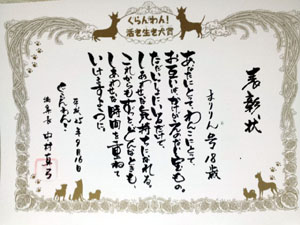 くらんわん!
活き生き大賞
表彰状
まりりん号 18歳
あなたにとって、わんこにとって
お互いは、かけがえのない宝もの。
ただいっしょにいるだけで、
しあわせな気持ちになれる。
これからもずっと、どんなときも、
しあわせな時間を重ねて
いけますように。
平成25年9月16日
くらんわん!
編集長 中村真弓